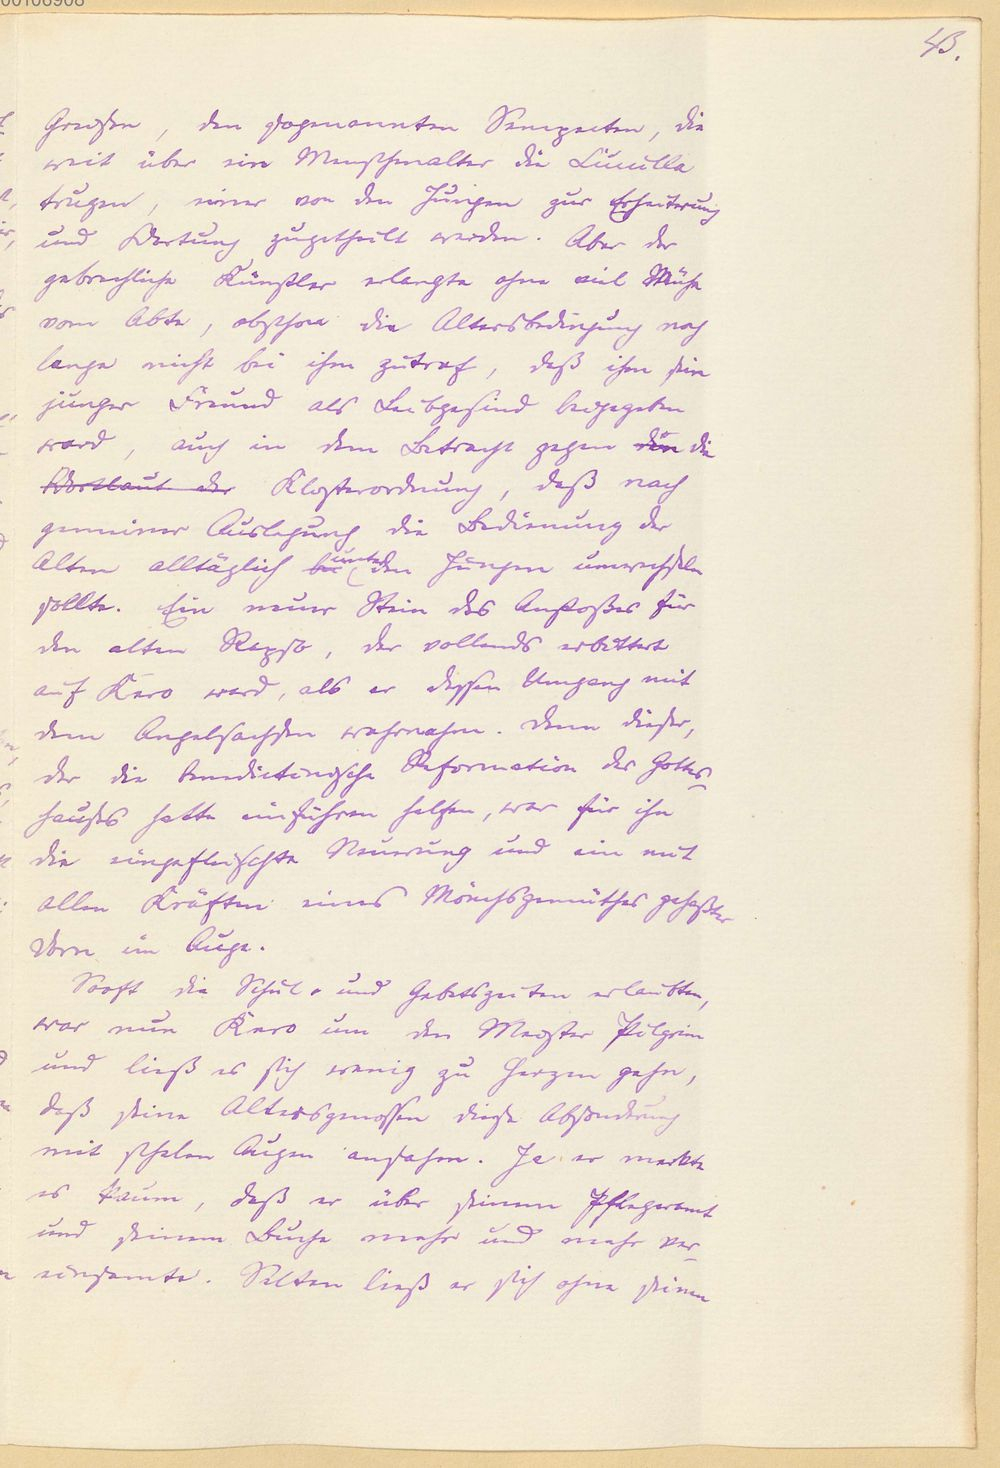 00106908
43.
Greisen, den sogenannten Sempecten, die
weit über ein Menschenalter die Cuculla
trugen, einer von den Jungen zur Erheiterung
und Wartung zugetheilt werden. Aber der
gebrechliche Künstler erlangte ohne viel Mühe
vom Abte, obschon die Altersbedingung noch
lange nicht bei ihm zutraf, daß ihm sein
junger Freund als Leibgesind beigegeben
ward, auch in dem Betracht gegen den die
Wortlaut der Klosterordnung, daß nach
gemeiner Auslegung die Bedienung der
Alten alltäglich bei unter den Jungen umwechseln
sollte. Ein neuer Stein des Anstoßes für
den alten Razo, der vollends erbittert
auf Kero ward, als er dessen Umgang mit
dem Angelsachsen wahrnahm. Denn dieser,
der die benedictinische Reformation des Gottes-
hauses hatte einführen helfen, war für ihn
die eingefleischte Neuerung und ein mit
allen Kräften eines Mönchsgemüthes gehaßter
Dorn im Auge.
Sooft die Schul- und Gebetszeiten erlaubten,
war nun Kero um den Meister Pilgrim
und ließ es sich wenig zu Herzen gehn,
daß seine Altersgenossen diese Absonderung
mit scheelen Augen ansahen. Ja er merkte
es kaum, daß er über seinem Pflegeramt
und seinem Buche mehr und mehr ver-
einsamte. Selten ließ er sich ohne seinen